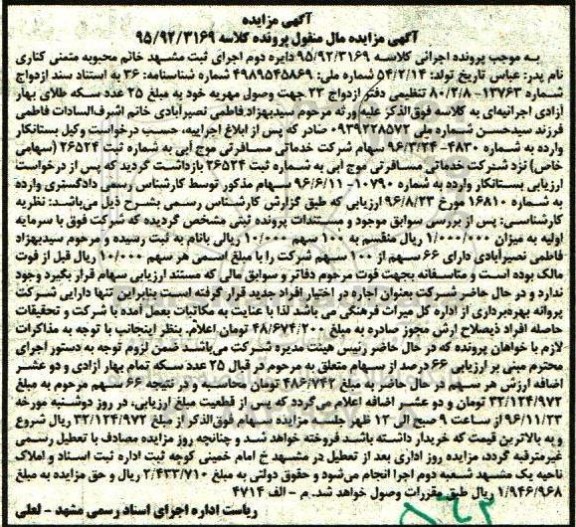 آگهی مزایده
آگهی مزایده مال منقول پرونده کلاسه ۹۵/۹۲/۳۱۶۹
به موجب پرونده اجرائی کلاسه ۹۵/۹۲/۳۱۶۹ دایره دوم اجرای ثبت مشهد خانم محبوبه متمنی کناری
نام پدر: عباس تاریخ تولد: ۵۴/۲/۱۴ شماره ملی: ۴۹۸۹۵۴۵۸۶۹ شماره شناسنامه: ۳۶ به استناد سند ازدواج
شماره ۱۳۷۶۳- ۸۰/۲/۸ تنظیمی دفتر ازدواج ۲۳ جهت وصول مهریه خود به مبلغ ۲۵ عدد سکه طلای بهار
آزادی اجرائیه‌ای به کلاسه فوق‌الذکر علیه ورثه مرحوم سیدبهزاد فاطمی نصیرآبادی خانم اشرف‌السادات فاطمی
فرزند سیدحسن شماره ملی ۰۹۳۹۲۲۸۵۷۲ صادر که پس از ابلاغ اجراییه، حسب درخواست وکیل بستانکار
وارده به شماره ۴۸۳۰- ۹۶/۳/۲۴ سهام شرکت خدماتی مسافرتی موج آبی به شماره ثبت ۲۶۵۲۴ (سهامی
خاص) نزد شرکت خدماتی مسافرتی موج آبی به شماره ثبت ۲۶۵۲۴ بازداشت گردید که پس از درخواست
ارزیابی بستانکار وارده به شماره ۱۰۷۹۰- ۹۶/۶/۱۱ سهام مذکور توسط کارشناس رسمی دادگستری وارده
به شماره ۱۶۸۱۰ مورخ ۹۶/۸/۲۳ ارزیابی که طبق گزارش کارشناس رسمی بشرح ذیل می‌باشد: نظریه
کارشناسی: پس از بررسی سوابق موجود و مستندات پرونده ثبتی مشخص گردیده که شرکت فوق با سرمایه
اولیه به میزان ۱/۰۰۰/۰۰۰ ریال منقسم به ۱۰۰ سهم ۱۰/۰۰۰ ریالی بانام به ثبت رسیده و مرحوم سیدبهزاد
فاطمی نصیرآبادی دارای ۶۶ سهم از ۱۰۰ سهم شرکت را با مبلغ اسمی هر سهم ۱۰/۰۰۰ ریال قبل از فوت
مالک بوده است و متاسفانه بجهت فوت مرحوم دفاتر و سوابق مالی که مستند ارزیابی سهام قرار بگیرد وجود
ندارد و در حال حاضر شرکت بعنوان اجاره در اختیار افراد جدید قرار گرفته است بنابراین تنها دارایی شرکت
پروانه بهره‌برداری از اداره کل میراث فرهنگی می باشد لذا با عنایت به مکاتبات بعمل آمده با شرکت و تحقیقات
حاصله افراد ذیصلاح ارش مجوز صادره به مبلغ ۴۸/۶۷۴/۲۰۰ تومان اعلام. بنظر اینجانب با توجه به مذاکرات
لازم با خواهان پرونده که در حال حاضر رئیس هیئت مدیره شرکت می‌باشد ضمن لزوم توجه به دستور اجرای
محترم مبنی بر ارزیابی ۶۶ درصد از سهام متعلق به مرحوم در قبال ۲۵ عدد سکه تمام بهار آزادی و دو عشر
اضافه ارزش هر سهم در حال حاضر به مبلغ ۴۸۶/۷۴۲ تومان محاسبه و در نتیجه ۶۶ سهم مرحوم به مبلغ
۳۲/۱۲۴/۹۷۲ تومان و دو عشر اضافه اعلام می‌گردد که پس از قطعیت مبلغ ارزیابی، در روز دوشنبه مورخه
۹۶/۱۱/۲۳ از ساعت ۹ صبح الی ۱۲ ظهر جلسه مزایده سهام فوق‌الذکر از مبلغ ۳۲/۱۲۴/۹۷۲ ریال شروع
و به بالاترین قیمت که خریدار داشته باشد فروخته خواهد شد و چنانچه روز مزایده مصادف با تعطیل رسمی
غیرمترقبه گردد، مزایده روز اداری بعد از تعطیل در مشهد خ امام خمینی کوچه ثبت اداره ثبت اسناد و املاک
ناحیه یک مشهد شعبه دوم اجرا انجام می‌شود و حقوق دولتی به مبلغ ۲/۴۳۳/۷۱۰ ریال و حق مزایده به مبلغ
۱/۹۴۶/۹۶۸ ریال طبق مقررات وصول خواهد شد. م - الف ۴۷۱۴
ریاست اداره اجرای اسناد رسمی مشهد - لعلی